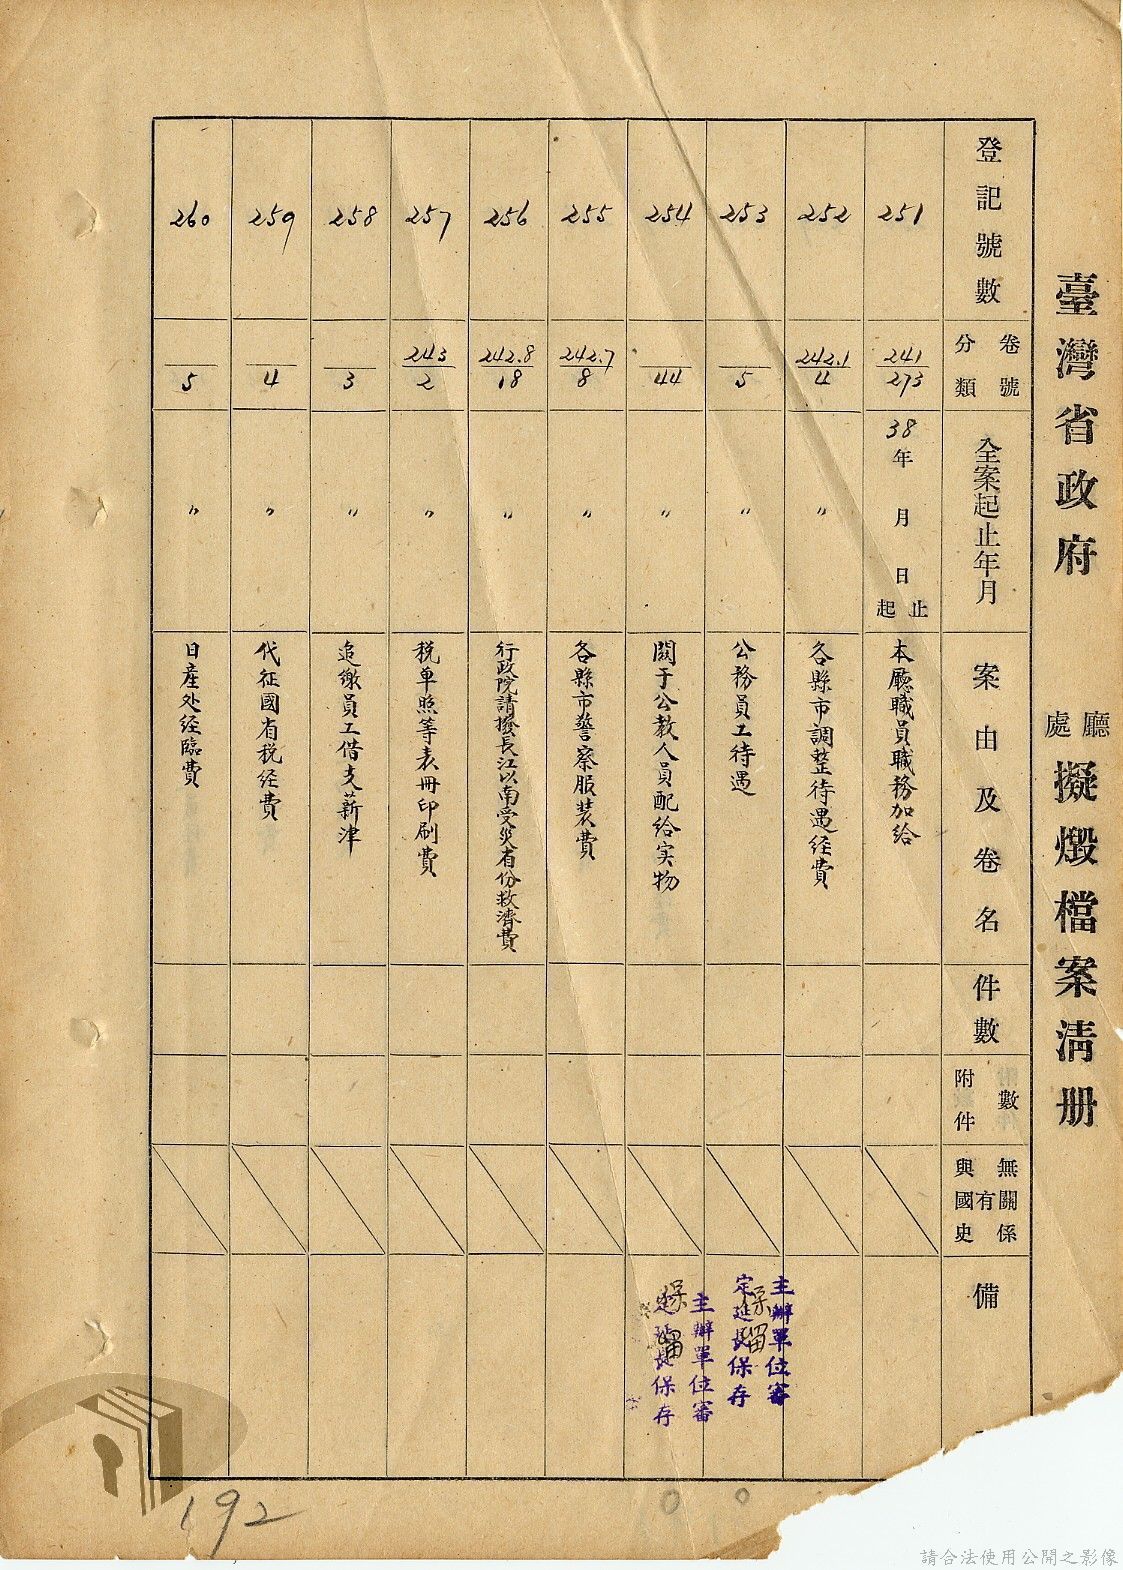 臺灣省政府廳處擬燬檔案清册
登記號數
分類卷號
全案起止年月
案由及卷名
件數
附件數
與國史有無關係
備
251
241/273
38年月日起止
本廳職員職務加给
252
242.1/4
〃
各縣市調整待遇经費
253
/5
〃
公務員工待遇
254
/44
〃
関于公教人員配给实物
255
242.7/8
〃
各縣市警察服装費
256
242.8/18
〃
行政院請撥長江以南受災省份救濟費
257
243/2
〃
税单照等表冊印刷費
258
/3
〃
追缴員工借支薪津
259
/4
〃
代征國省税经費
260
/5
〃
日産处经臨費
主辦單位審
定延長保存
保留
主辦單位審
定延長保存
保留
192
請合法使用公開之影像